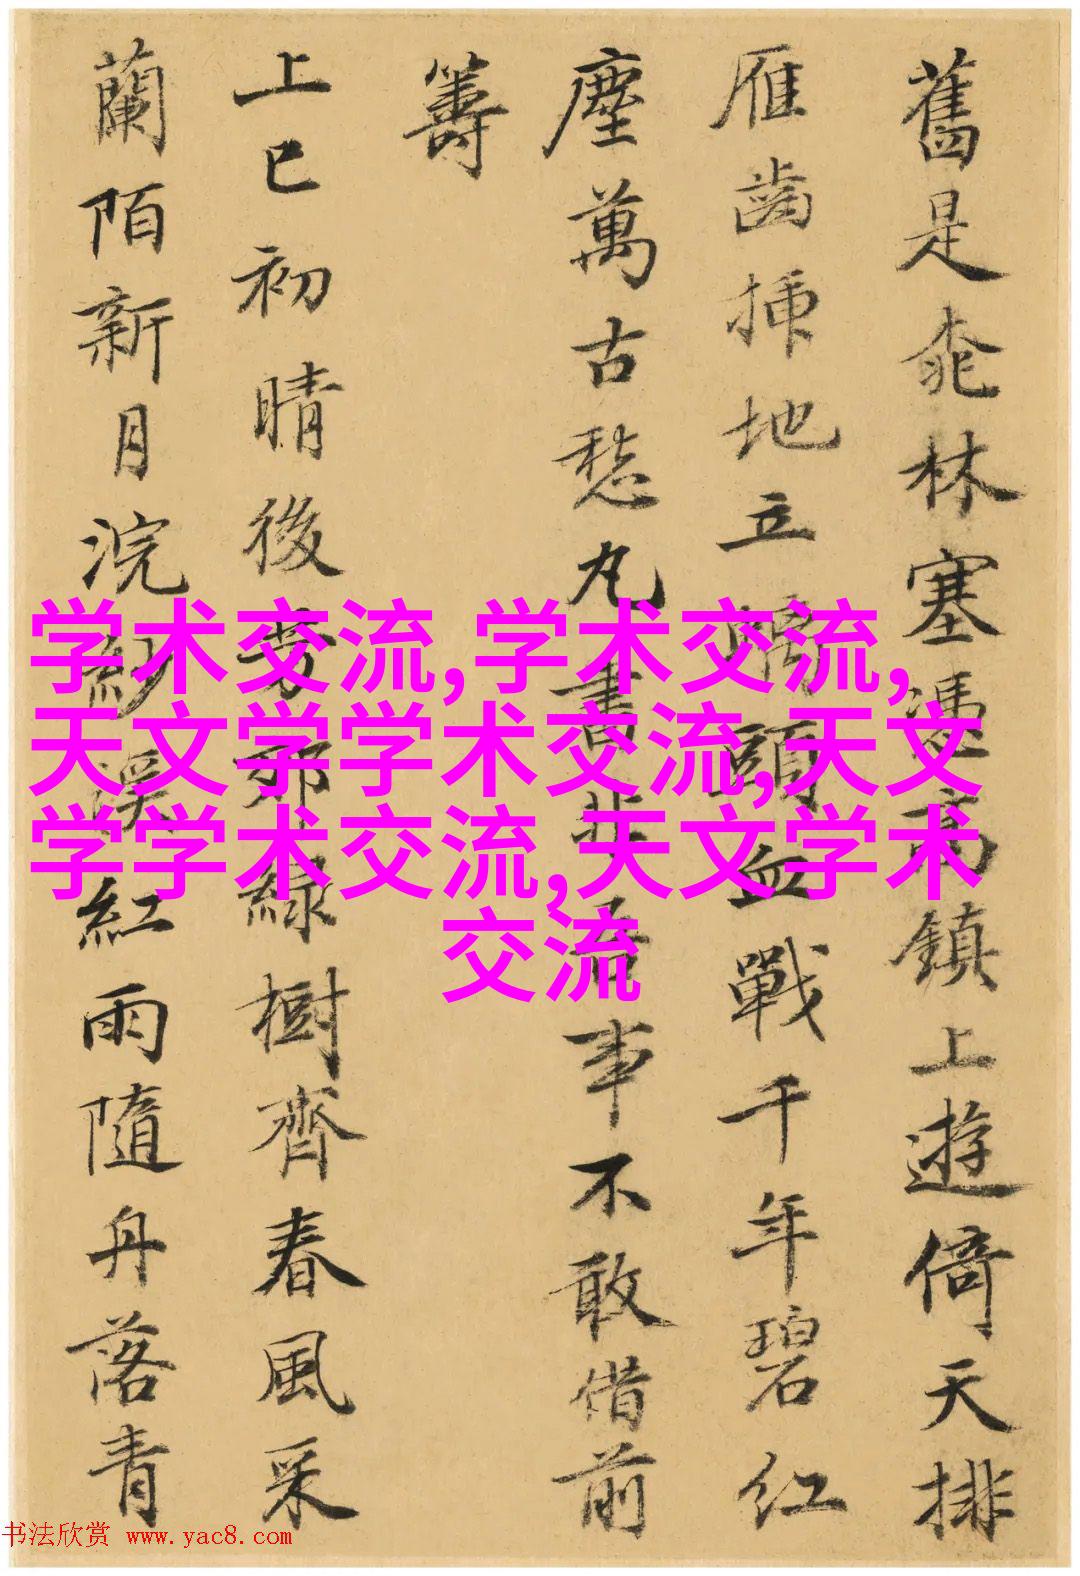 舊是桃林塞憑高鎮上遊倚天排
雁齒挿地立頭血戰千年碧紅
塵萬古愁丸書非吾事不敢借前
籌
上巳初晴後芳郊綠樹齊春風采
蘭陌新月浣紗溪紅雨隨舟落青
学术交流,学术交流,
天文学学术交流,天文
学学术交流,天文学术
交流
书法欣赏 www.yac8.com